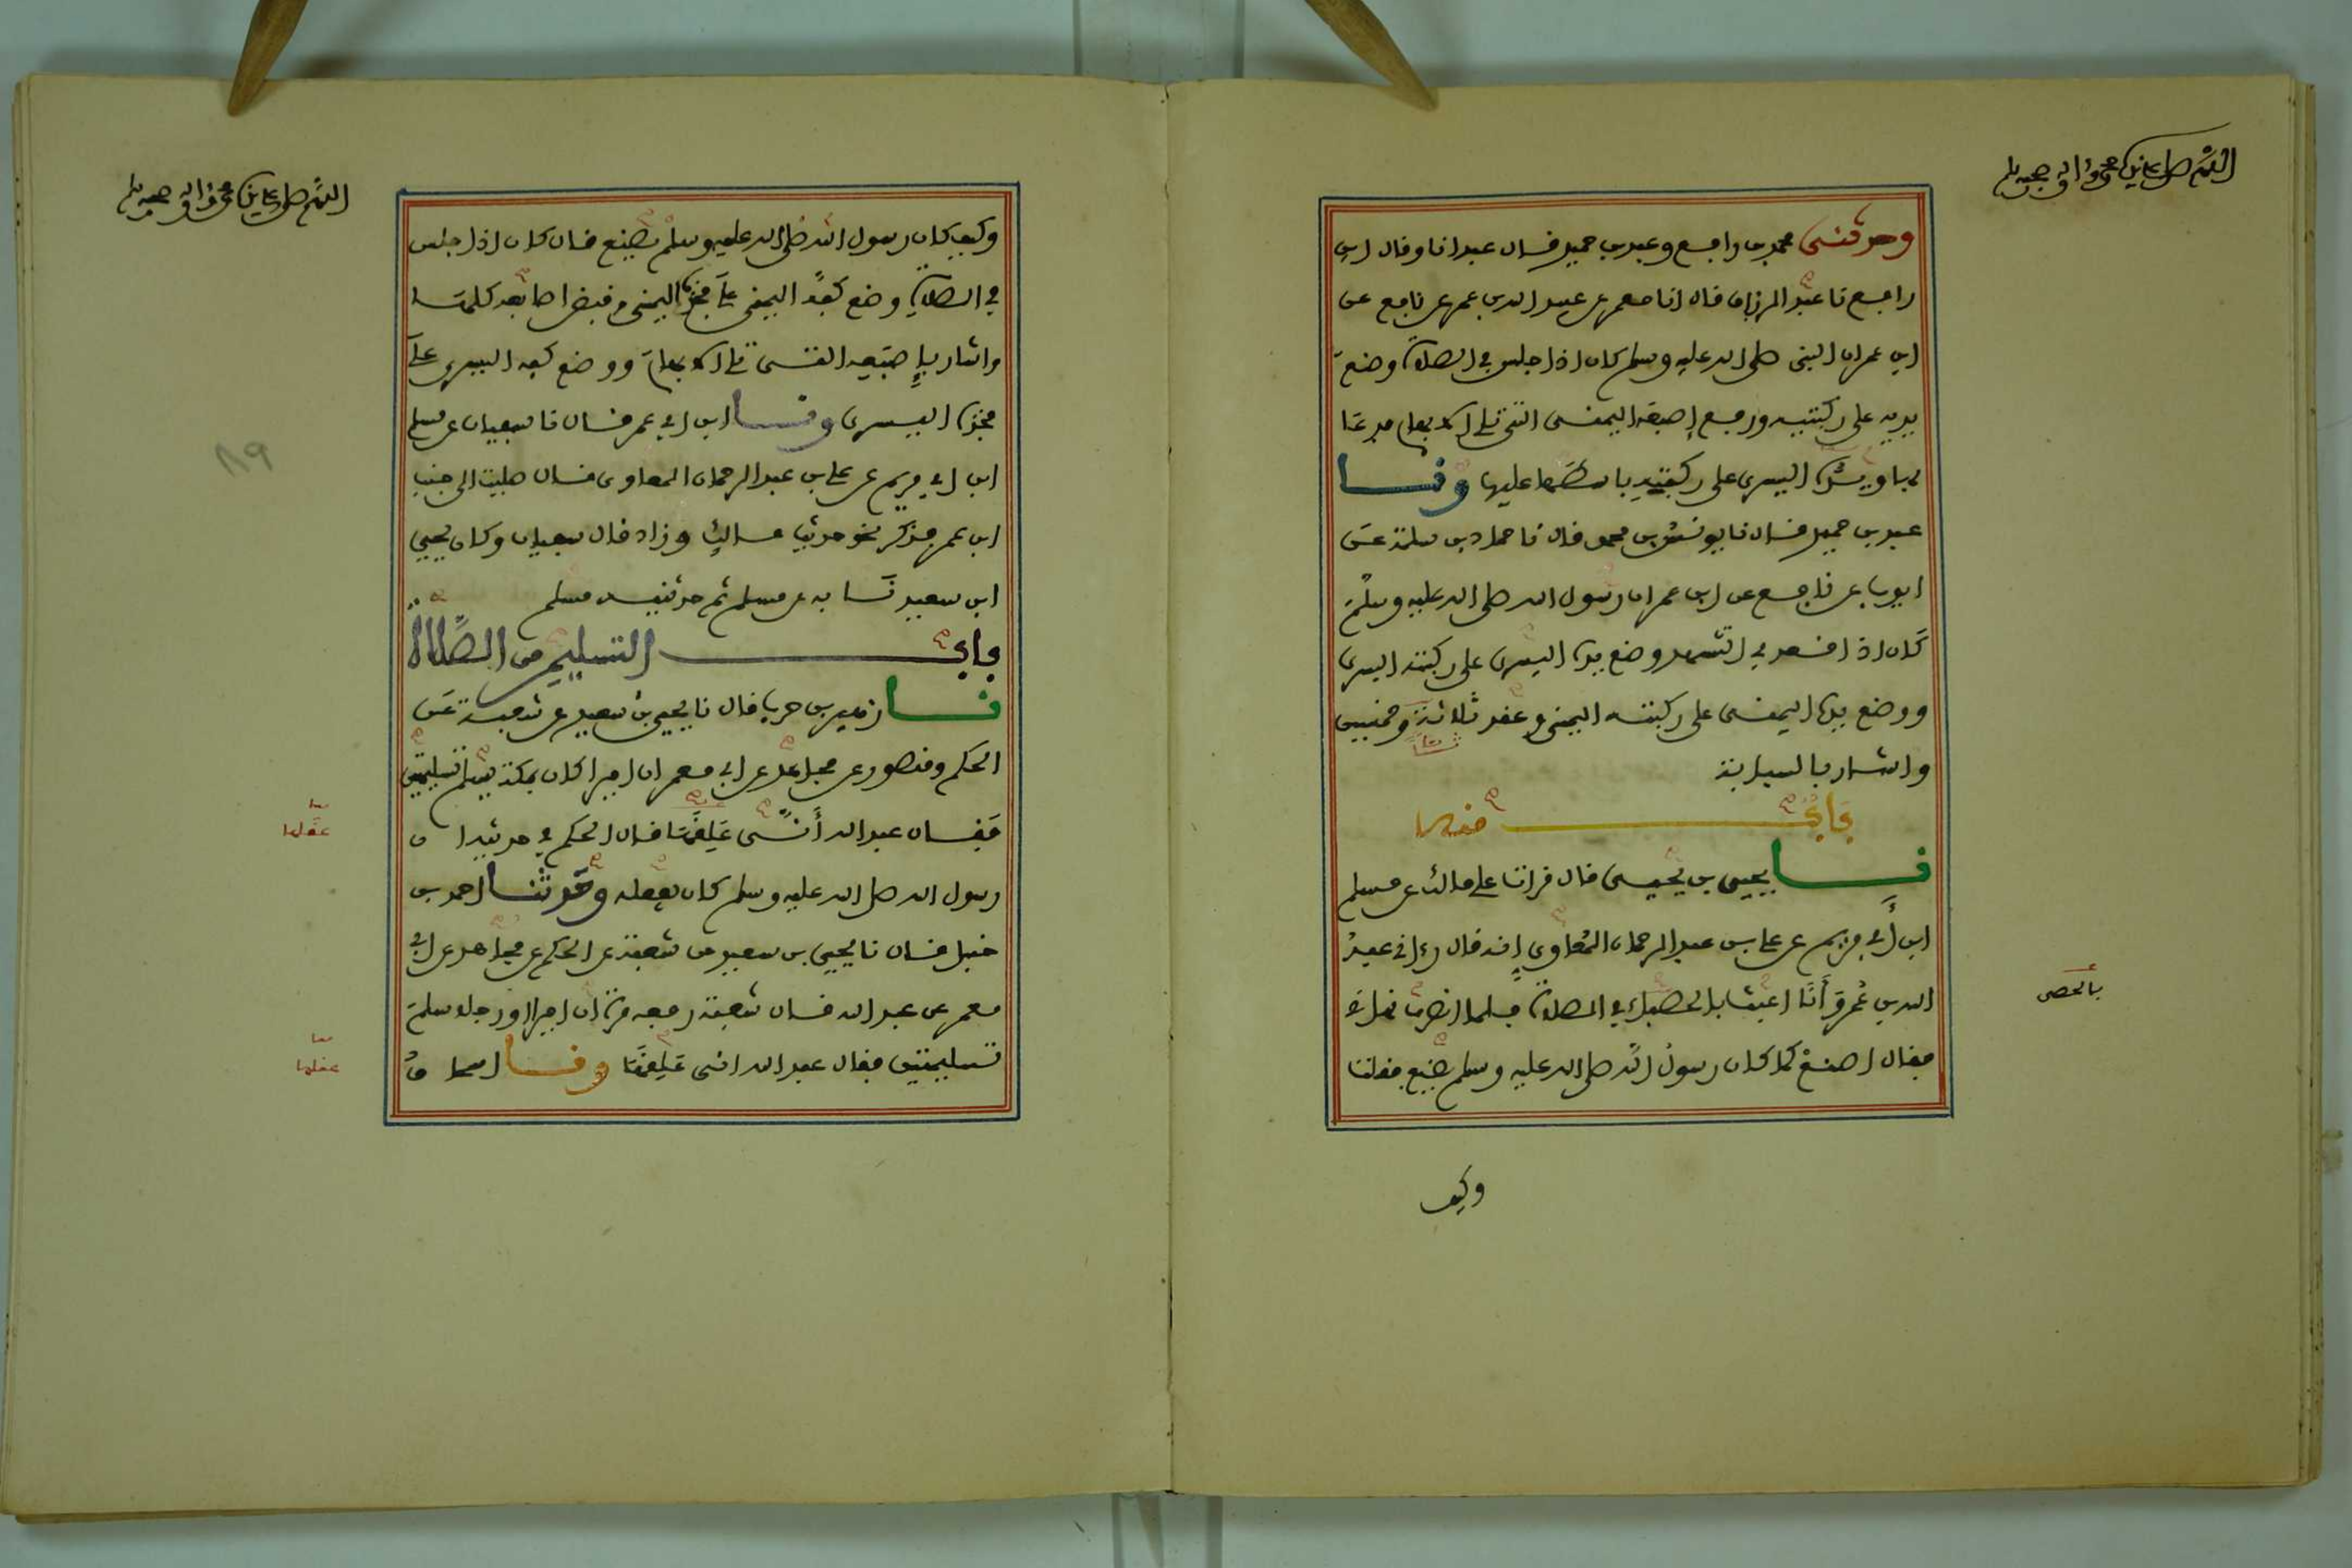 اللهم صل على سيدنا محمد وءاله وصحبه وسلم
وحدثنى محمد بن رافع وعبد بن حميد قال عبد انا وقال ابن
رافع نا عبد الرزاق قال انا معمر عن عبيد الله بن عمر عن نافع عن
ابن عمر ان النبى صلى الله عليه وسلم كان اذا جلس في الصلاة وضع
يديه على ركبتيه ورفع إصبعه اليمنى التى تلى الابهام فدعا
بها ويده اليسرى على ركبته باسطها عليها ونا
عبد بن حميد قال نا يونس بن محمد قال نا حماد بن سلمة عن
ايوب عن نافع عن ابن عمر ان رسول الله صلى الله عليه وسلم
كان اذا قعد في التشهد وضع يده اليسرى على ركبته اليسرى
ووضع يده اليمنى على ركبته اليمنى وعقد ثلاثة وخمسين
واشار بالسبابة
باب منه
نا يحيى بن يحيى قال قرانا على مالك عن مسلم
ابن أبي مريم عن على بن عبد الرحمان المعاوي إنه قال رءاني عبد
الله بن عمر وأنا اعبث بالحصباء في الصلاة فلما انصرف نهانى
بالحصى
فقال اصنع كما كان رسول الله صلى الله عليه وسلم يصنع فقلت
وكيف
اللهم صل على سيدنا محمد وءاله وصحبه وسلم
وكيف كان رسول الله صلى الله عليه وسلم يصنع قال كان اذا جلس
في الصلاة وضع كفه اليمنى على فخذه اليمنى وقبض اصابعه كلها
واشار بإصبعه التى تلى الابهام ووضع كفه اليسرى على
فخذه اليسرى ونا ابن ابي عمر قال نا سفيان عن مسلم
ابن ابي مريم عن على بن عبد الرحمان المعاوى قال صليت الى جنب
ابن عمر فذكر نحو حديث مالك وزاد قال سفيان وكان يحيى
ابن سعيد نا به عن مسلم ثم حدثنيه مسلم
باب التسليم من الصلاة
نا زهير بن حرب قال نا يحيى بن سعيد عن شعبة عن
الحكم ومنصور عن مجاهد عن ابي معمر ان اميرا كان بمكة يسلم تسليمتين
فقال عبد الله أنى علقها قال الحكم في حديثه ان
عقلها
رسول الله صلى الله عليه وسلم كان يفعله وحدثنا احمد بن
حنبل قال نا يحيى بن سعيد عن شعبة عن الحكم عن مجاهد عن ابي
معمر عن عبد الله قال شعبة رفعه مرة ان اميرا او رجلا سلم
تسليمتين فقال عبد الله انى علقها ونا اسحاق
عقلها
٨٩